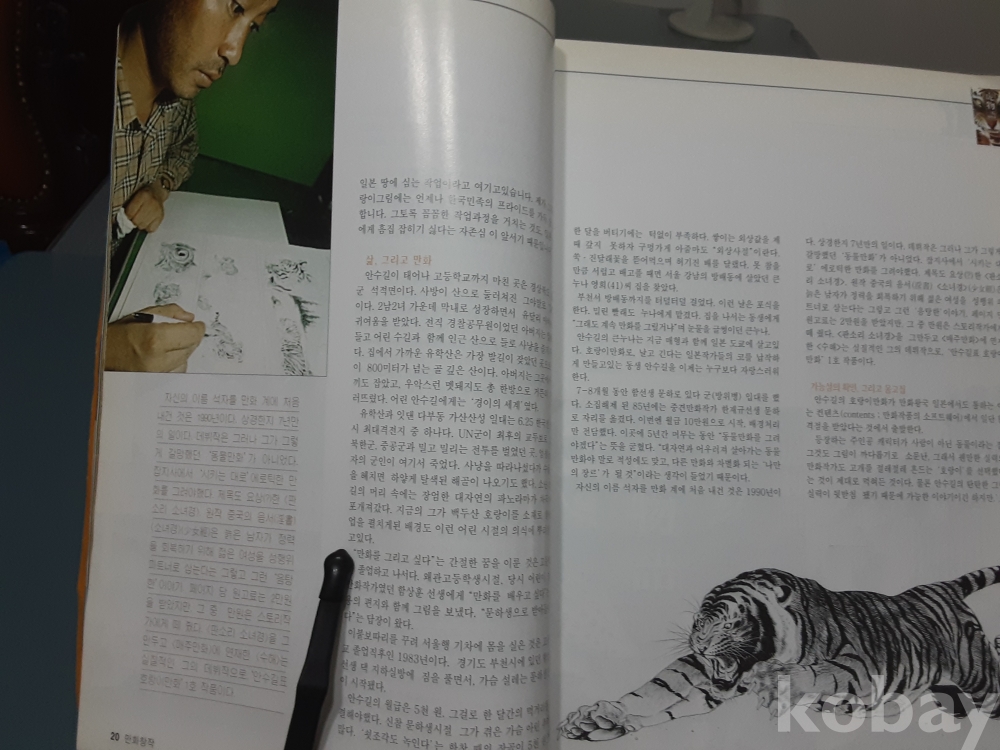 일본 땅에 심는 작업이라고 여기고있습니다.
랑이그림에는 언제나 한국민족의 프라이드를
합니다. 그토록 꼼꼼한 작업과정을 거치는 것도
에게 흠집 잡히기 싫다는 자존심 이 앞서기 때문
삶, 그리고 만화
안수길이 태어나 고등학교까지 마친 곳은
군 석적면이다. 사방이 산으로 둘러쳐진
이다. 2남2녀 가운데 막내로 성장하면서
귀여움을 받았다. 전직 경찰공무원이었던 아버지는
들고 어린 수길과 함께 인근 산으로 들로 사냥을
다. 집에서 가까운 유학산은 가장 발길이 잦았던
이 800미터가 넘는 골 깊은 산이다. 아버지는
끼도 잡았고, 우악스런 멧돼지도 총 한방으로
러뜨렸다. 어린 안수길에게는 '경이의 세계'였다.
유학산과 잇댄 다부동 가산산성 일대는 6.25
시 최대격전지 중 하나다. UN군이 최후의
북한군, 중공군과 밀고 밀리는 전투를 벌였던 곳,
자의 군인이 여기서 죽었다. 사냥을 따라나섰다가
을 헤치면 하얗게 탈색된 해골이 나오기도 했다.
길의 머리 속에는 장엄한 대자연의 파노라마가
포개져갔다. 지금의 그가 백두산 호랑이를 소재로
업을 펼치게된 배경도 이런 어린 시절의 의식에
고있다.
"만화를 그리고 싶다"는 간절한 꿈을 이룬 것은
졸업하고 나서다. 왜관고등학생시절, 당시
만화작가였던 함상훈 선생에게 "만화를 배우고
의 편지와 함께 그림을 보냈다. "문하생으로
다"는 답장이 왔다.
이불보따리를 꾸려 서울행 기차에 몸을 실은 것은
교 졸업직후인 1983년이다. 경기도 부천시에
선생 댁 지하실방에 짐을 풀면서, 가슴 설레는
이 시작됐다.
안수길의 월급은 5천 원, 그걸로 한 달간의
결해야했다. 신참 문하생시절 그가 겪은
자신의 이름 석자를 만화 계에 처음
내건 것은 1990년이다. 상경한지 7년만
의 일이다. 데뷔작은 그러나 그가 그렇
게 갈망했던 "동물만화"가 아니었다.
잡지사에서 "시키는 대로" 에로틱한 만
화를 그려야했다. 제목도 요상(?)한 《판
소리 소녀경》. 원작 중국의 음서(淫書)
《소녀경(小少女經)》은 늙은 남자가 정력
을 회복하기 위해 젊은 여성을 성행위
파트너로 삼는다는 그렇고 그런 "음탕
한" 이야기
을 받았지만, 그 중 만원은 스토리작
가에게 떼 줬다. 《판소리 소녀경》을 그
만두고 《매주만화》에 연재한 《수해》는
실질적인 그의 데뷔작으로, "안수길표
호랑이만화" 1호 작품이다.
20 만화창작
한 달을 버티기에는 턱없이 부족하다. 쌀이는 외상값을 제
때 갚지 못하자 구멍가게 아줌마도 "외상사절"이란다.
쑥·진달래꽃을 뜯어먹으며 허기진 배를 달랬다. 못 참을
만큼 서럽고 배고플 때면 서울 강남의 방배동에 살았던 큰
누나 영희(41)씨 집을 찾았다.
부천서 방배동까지를 터덜터덜 걸었다. 이런 날은 포식을
한다. 밀린 빨래도 누나에게 맡겼다. 짐을 나서는 동생에게
"그래도 계속 만화를 그릴거냐"며 눈물을 글썽이던 큰누나.
안수길의 큰누나는 지금 매형과 함께 일본 도쿄에 살고있
다. 호랑이만화로, 날고 긴다는 일본작가들의 코를 납작하
게 만들고있는 동생 안수길을 이제는 누구보다 자랑스러워
한다.
7~8개월 동안 함선생 문하로 있다 군(방위병) 입대를 했
다. 소집해제 된 85년에는 중견만화작가 한재규선생 문하
로 자리를 옮겼다. 이번엔 월급 10만원으로 시작, 배경처리
만 전담했다. 이곳에 5년간 머무는 동안 "동물만화를 그려
야겠다"는 뜻을 굳혔다. "대자연과 어우러져 살아가는 동물
만화야 말로 적성에도 맞고, 다른 만화와 차별화 되는 '나만
의 장르' 가 될 것"이라는 생각이 들었기 때문이다.
자신의 이름 석자를 만화 계에 처음 내건 것은 1990년이
다. 상경한지 7년만의 일이다. 데뷔작은 그러나 그가 그렇게
갈망했던 "동물만화"가 아니었다. 잡지사에서 "시키는
로" 에로틱한 만화를 그려야했다. 제목도 요상(?)한 《판
리 소녀경》. 원작 중국의 음서(淫書) 《소녀경(小少女經)》
늙은 남자가 정력을 회복하기 위해 젊은 여성을 성행위
트너로 삼는다는 그렇고 그런 "음탕한 이야기. 페이지
원고료는 2만원을 받았지만, 그 중 만원은 스토리작가에
떼 줬다. 《판소리 소녀경》을 그만두고 《매주만화》에 연
한 《수해》는 실질적인 그의 데뷔작으로, "안수길표 호랑
만화" 1호 작품이다.
가능성의 확인, 그리고 옹고집
안수길의 호랑이만화가 만화왕국 일본에서도 통하는
는 컨텐츠(contents : 만화작품의 소프트웨어)에서 일단
격점을 받았다는 것에서 출발한다.
등장하는 주인공 캐릭터가 사람이 아닌 동물이라는
그것도 그림이 까다롭기로 소문난, 그래서 웬만한 실력
만화작가도 고개를 절레절레 흔드는 '호랑이'를 선택했
는 것이 제대로 먹혀든 것이다. 물론 안수길의 탄탄한 그
실력이 뒷받침 됐기 때문에 가능한 이야기이긴 하지만.
kobay